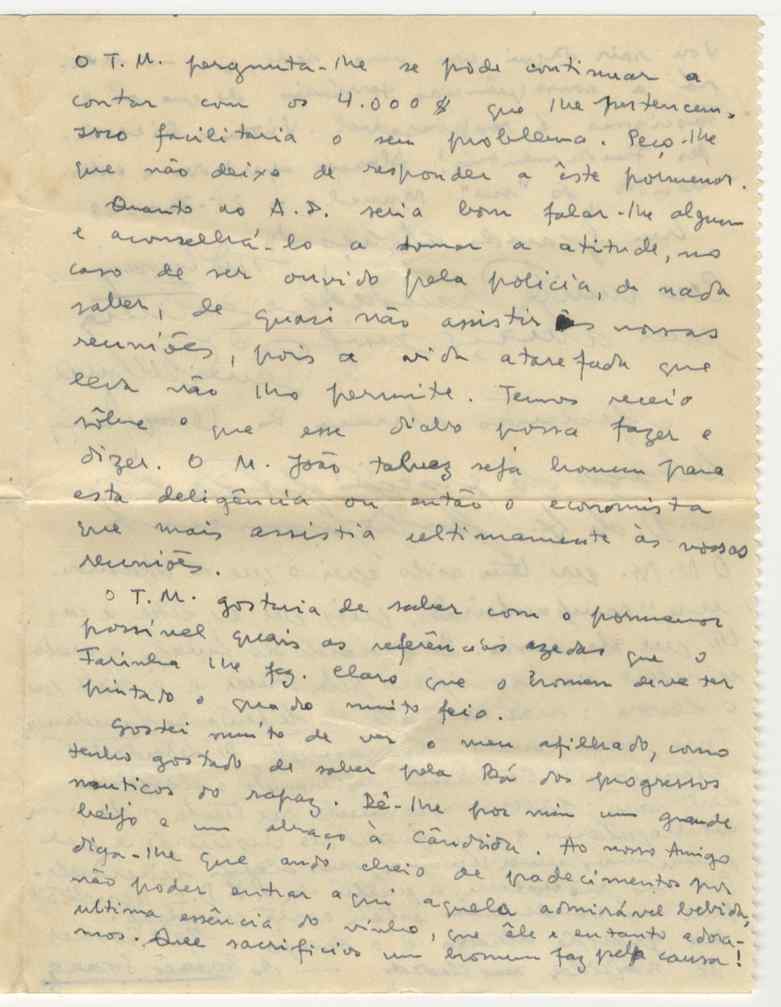 O T.M. pergunta-lhe se pode continuar a
contar com os 4.000$ que lhe pertencem.
Isso facilitaria o seu problema. Peço-lhe
que não deixe de responder a êste pormenor.
Quanto ao A.D. seria bom falar-lhe alguem
e aconselhá-lo a tomar a atitude, no
caso de ser ouvido pela policia, de nada
saber, de quasi não assistir às nossas
reuniões, pois a vida atarefada que
leva não lho permite. Temos receio
sôbre o que esse diabo possa fazer e
dizer. O M. João talvez seja homem para
esta deligência ou então o economista
que mais assistia ultimamente às vossas
reuniões.
O T.M. gostaria de saber com o pormenor
possível quais as referências azedas que o
Farinha lhe fez. Claro que o homem deve ter
pintado o quadro muito feio.
Gostei muito de ver o meu afilhado, como
tenho gostado de saber pela dos progressos
nauticos do rapaz. Dê-lhe por mim um grande
beijo e um abraço à Cândida. Ao nosso Amigo
diga-lhe que ando cheio de padecimentos por
não poder entrar aqui aquela admirável bebida,
ultima essência do vinho, que êle e eu tanto adora-
mos. Que sacrificios um homem faz pela causa!